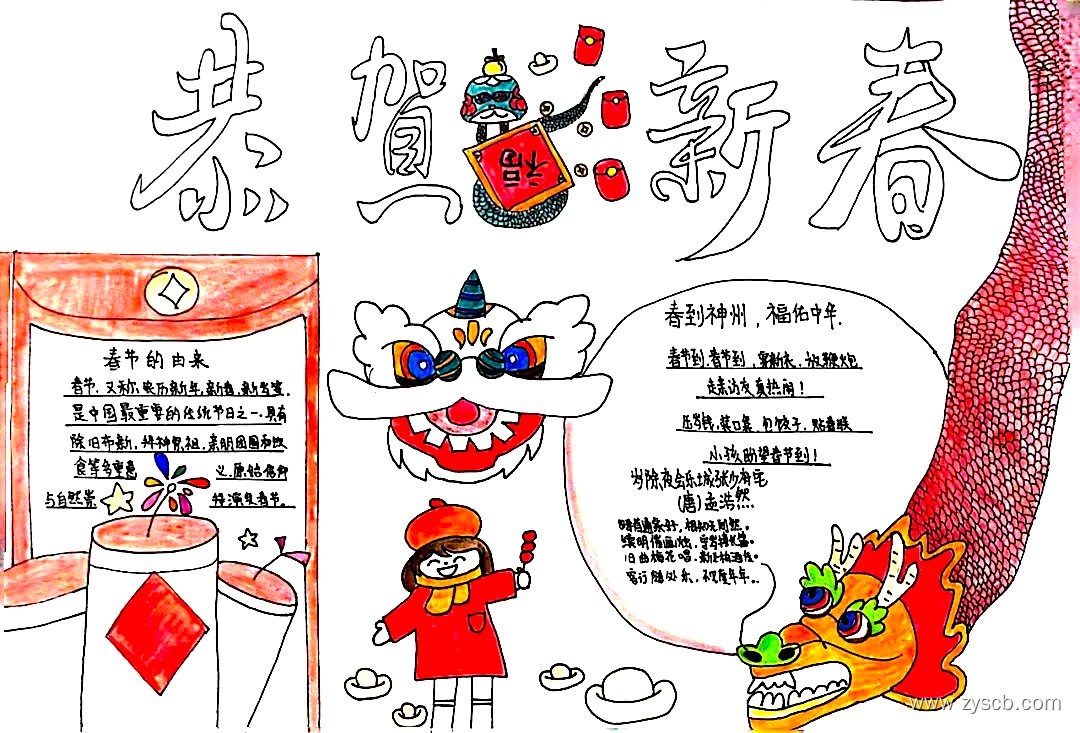 恭贺新春
福
春节的由来
春节，又称农历新年，新春，新岁等，
是中国最重要的传统节日之一，具有
除旧布新，拜神祭祖，亲朋团圆和饮
食等多重意义，原始信仰
与自然崇拜演变春节。
春到神州，福佑中华.
春节到，春节到，穿新衣，放鞭炮
走亲访友真热闹！
压岁钱，装口袋，包饺子，贴春联
小孩盼望春节到！
岁除夜会乐城张少府宅
(唐)孟浩然
旧曲梅花唱，新正柏酒传。
客行随处乐，不见度年年。
www.zyscb.com